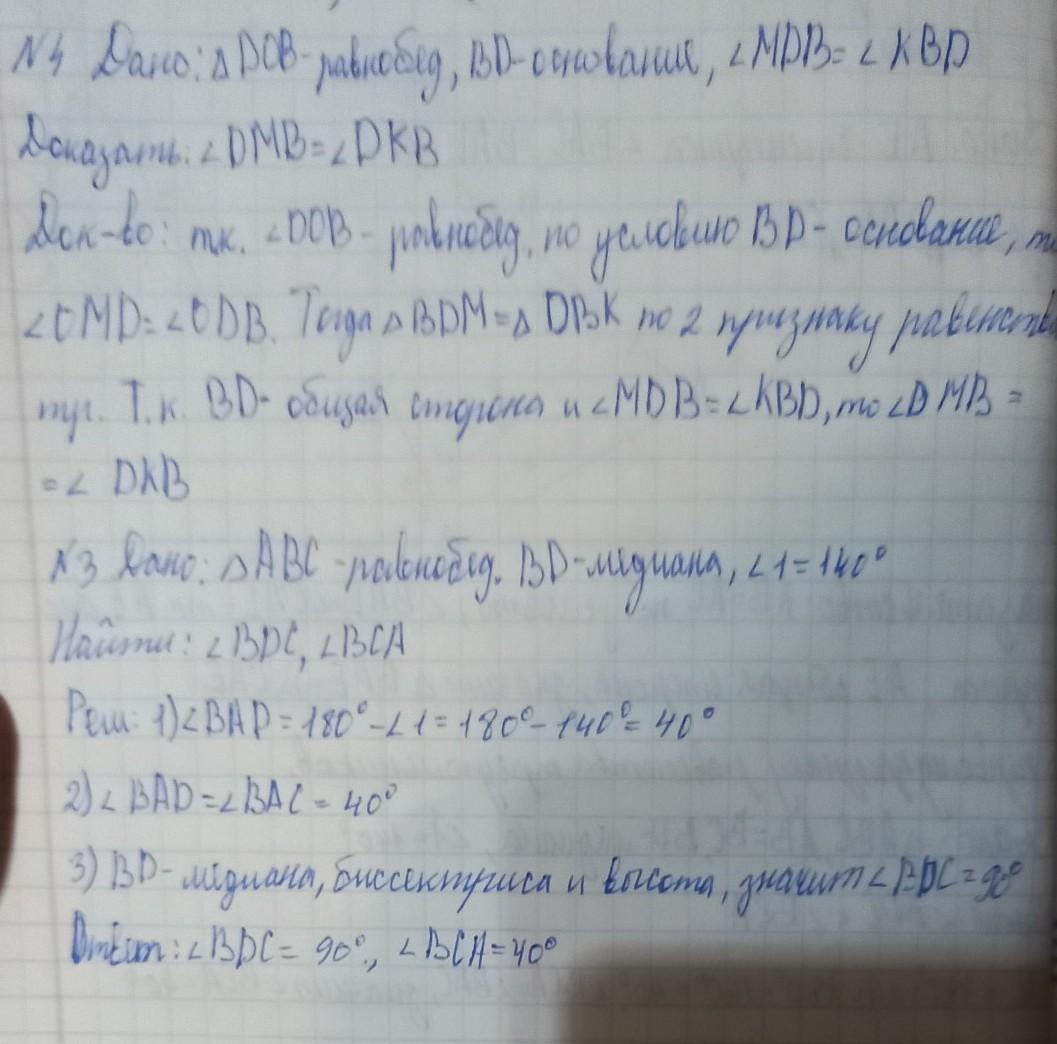 N4 Дано: △DOB-равнобед, BD-основание, ∠MDB=∠KBD
Доказать: ∠DMB=∠DKB
Док-во: т.к. ∠DOB - равнобед. по условию BD - основание, т
∠OMD=∠ODB. Тогда △BDM=△DBK по 2 признаку равенств
тр. Т.к. BD- общая сторона и ∠MDB=∠KBD, то ∠DMB =
=∠ DKB
N3 Дано: △ABC -равнобед. BD-медиана, ∠1=140°
Найти: ∠BDC, ∠BCA
Реш: 1)∠BAD=180°-∠1=180°-140°=40°
2)∠BAD=∠BAC=40°
3) BD- медиана, биссектриса и высота, значит ∠BDC=90°
Ответ: ∠BDC= 90°, ∠BCA=40°